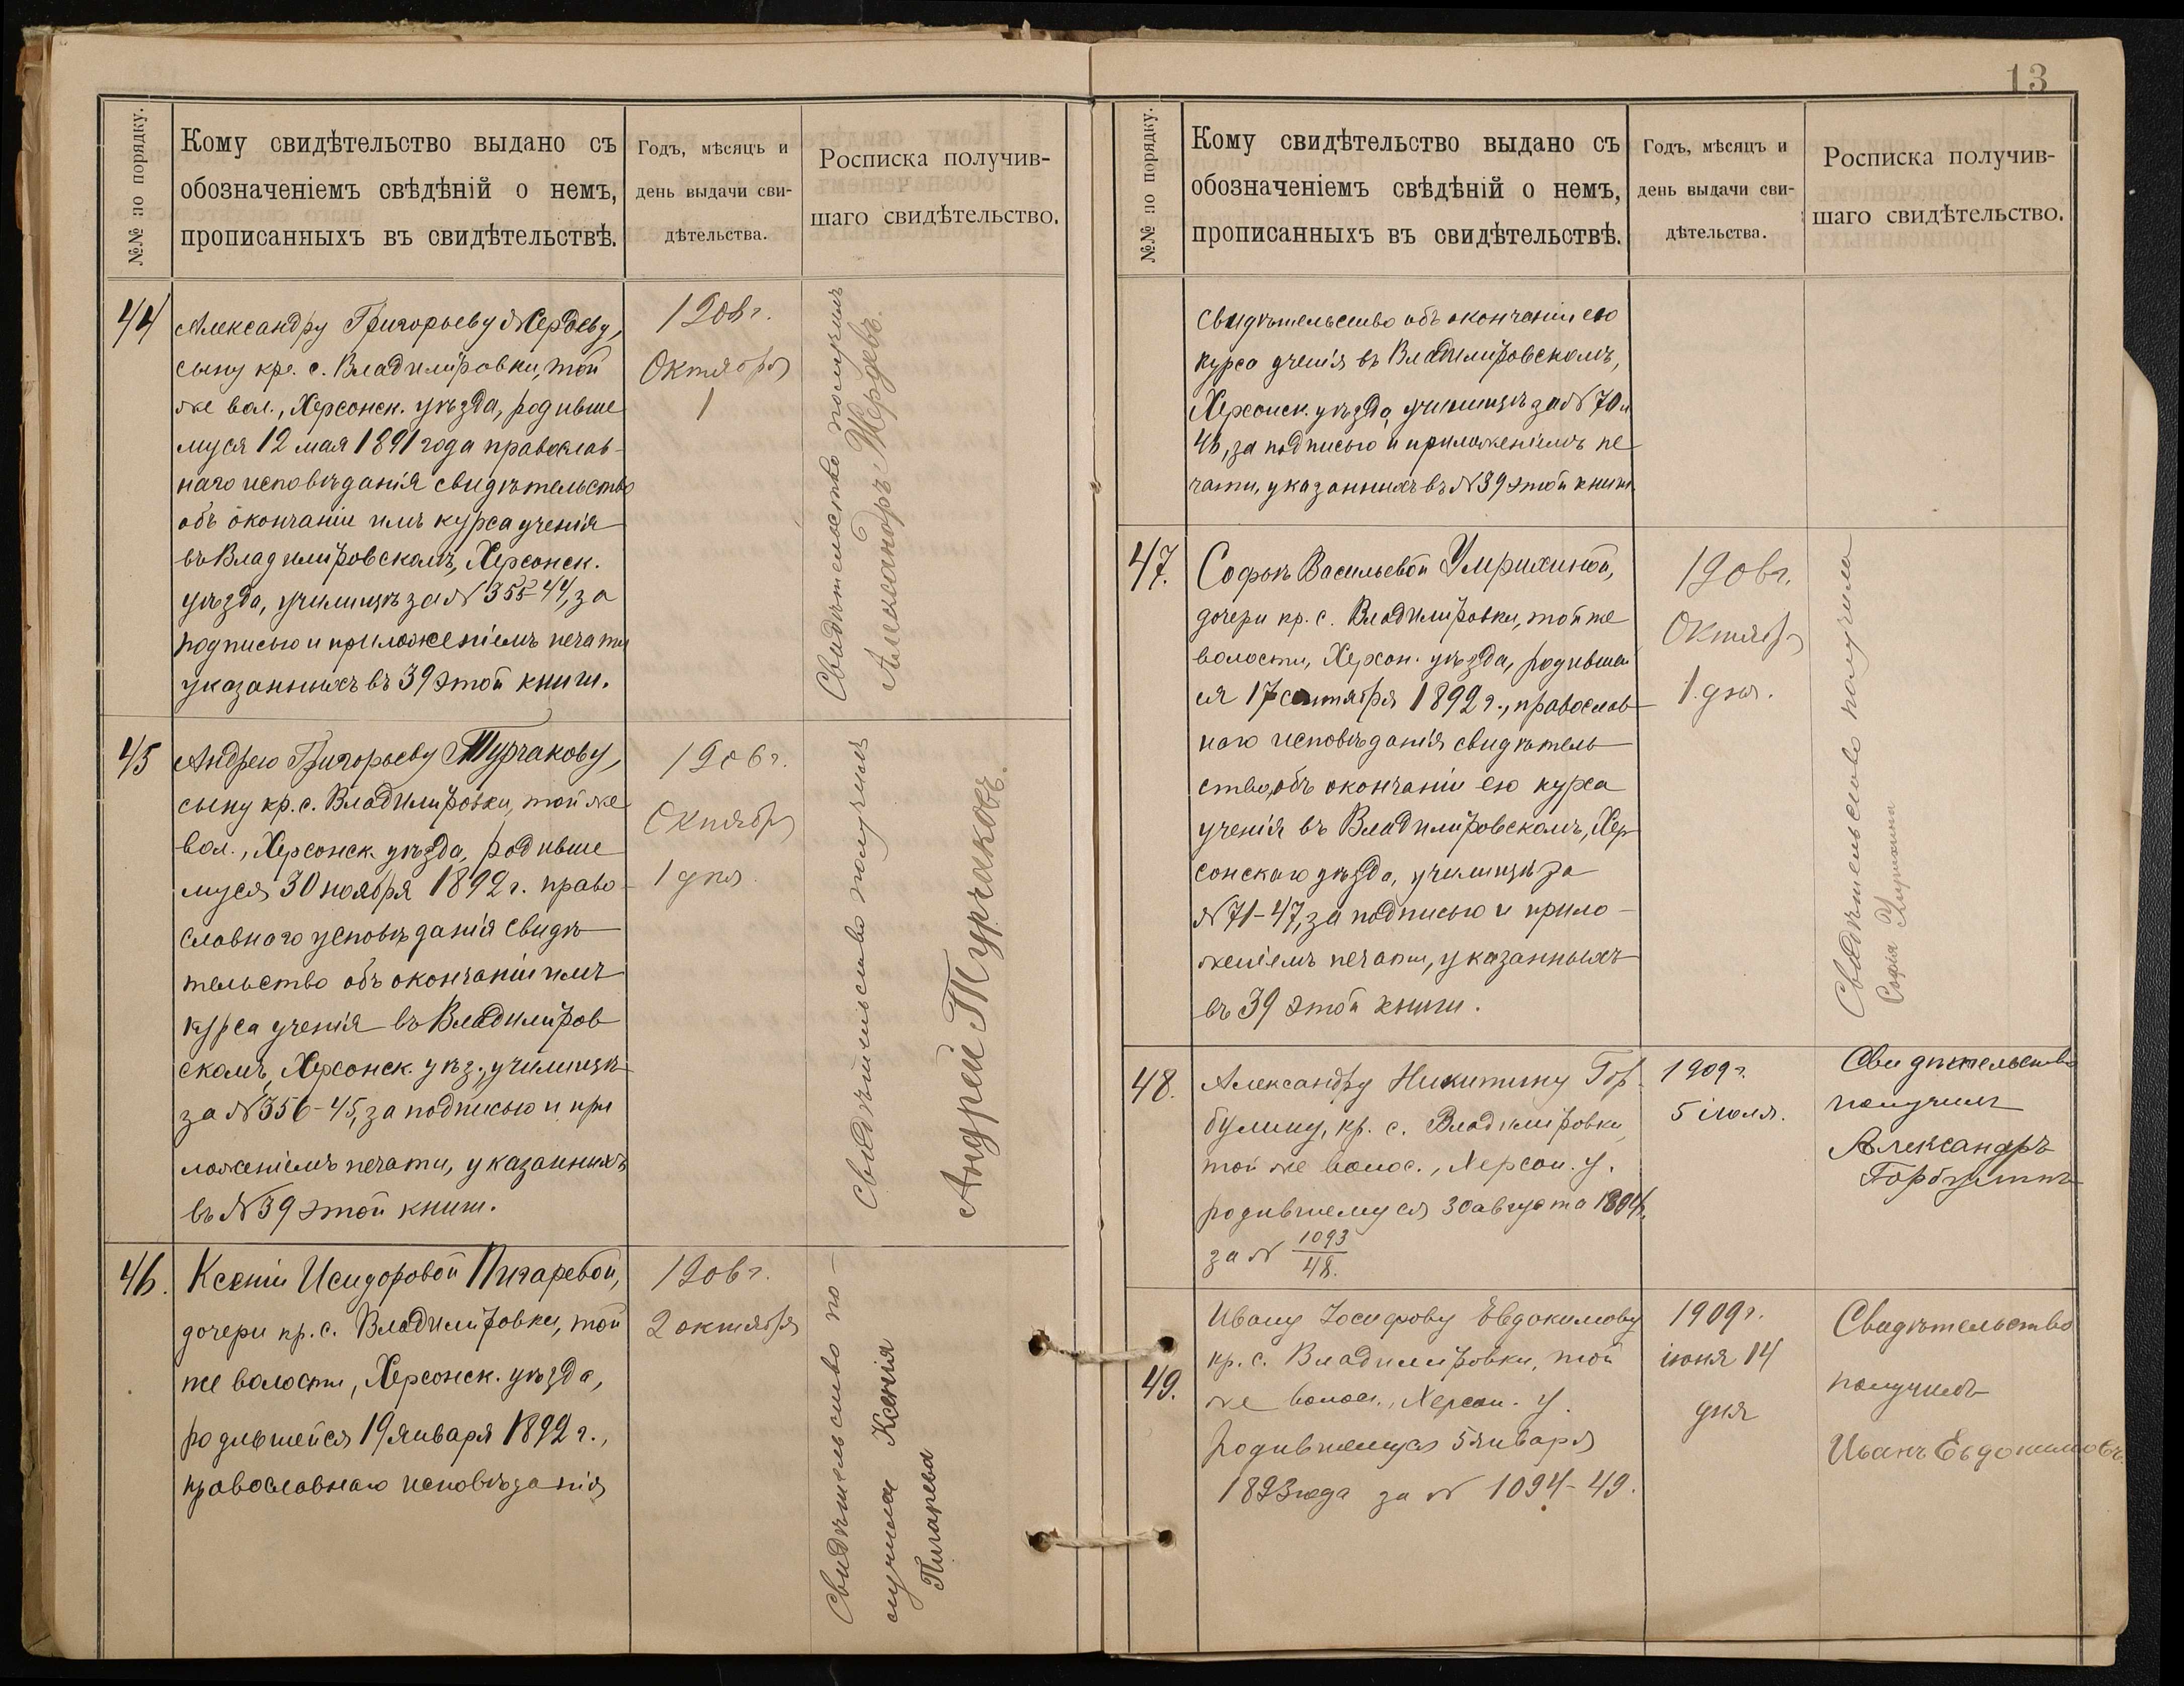 №№ по порядку.
Кому свидѣтельство выдано съ
обозначеніемъ свѣдѣній о немъ,
прописанныхъ въ свидѣтельствѣ.
Годъ, мѣсяцъ и
день выдачи сви-
дѣтельства.
Росписка получив-
шаго свидѣтельство.
44
Александру Григорьеву Жердеву,
сыну кре. с. Владимировки, той
же вол., Херсонск. уѣзда, родивше
муся 12 мая 1891 года православ-
наго исповѣданія свидѣтельство
объ окончаніи имъ курса ученія
въ Владимировскомъ, Херсонск.
уѣзда, училищѣ за № 355-44, за
подписью и приложеніемъ печати
указанныхъ въ 39 этой книги.
1906 г.
Октября
1
Свидѣтельство получилъ
Александръ Жердевъ.
45
Андрею Григорьеву Турчакову,
сыну кр. с. Владимировки, той же
вол., Херсонск. уѣзда, родивше
муся 30 ноября 1892 г. право-
славнаго исповѣданія свидѣ
тельство объ окончаніи имъ
курса ученія въ Владимиров
скомъ, Херсонск. уѣз., училищѣ
за № 356-45, за подписью и при
ложеніемъ печати, указанныхъ
въ № 39 этой книги.
1906 г.
Октября
1 дня
Свидѣтельство получилъ
Андрей Турчаковъ.
46.
Ксеніи Исидоровой Пигаревой,
дочери кр. с. Владимировки, той
же волости, Херсонск. уѣзда,
родившейся 19 января 1892 г.,
православнаго исповѣданія
1906 г.
2 октября
Свидѣтельство по-
лучила Ксенія
Пигарева
13
№№ по порядку.
Кому свидѣтельство выдано съ
обозначеніемъ свѣдѣній о немъ,
прописанныхъ въ свидѣтельствѣ.
Годъ, мѣсяцъ и
день выдачи сви-
дѣтельства.
Росписка получив-
шаго свидѣтельство.
свидѣтельство объ окончаніи ею
курса ученія въ Владимировскомъ,
Херсонск. уѣзда, училищѣ за № 70 и
46, за подписью и приложеніемъ пе
чати, указанныхъ въ № 39 этой книги
47.
Софьѣ Васильевой Умрихиной,
дочери кр. с. Владимировки, той же
волости, Херсон. уѣзда, родившей
ся 17 сентября 1892 г., православ
наго исповѣданія свидѣтель
ство, объ окончаніи ею курса
ученія въ Владимировскомъ, Хер
сонскаго уѣзда, училищѣ за
№ 71-47, за подписью и прило-
женіемъ печати, указанныхъ
въ 39 этой книги.
1906 г.
Октября
1 дня.
Свидѣтельство получила
Софія Умрихина
48.
Александру Никитину Гор-
булину, кр. с. Владимировки,
той же волос., Херсон. у.
родившемуся 30 августа
за № 1093
48.
1909 г.
5 іюля.
Свидѣтельство
получилъ
Александръ
Горбулинъ
49.
Ивану Іосифову Евдокимову
кр. с. Владимировки, той
же волос., Херсон. у.
родившемуся 5 января
1893 года за № 1094-49.
1909 г.
іюня 14
дня
Свидѣтельство
получилъ
Иванъ Евдокимовъ